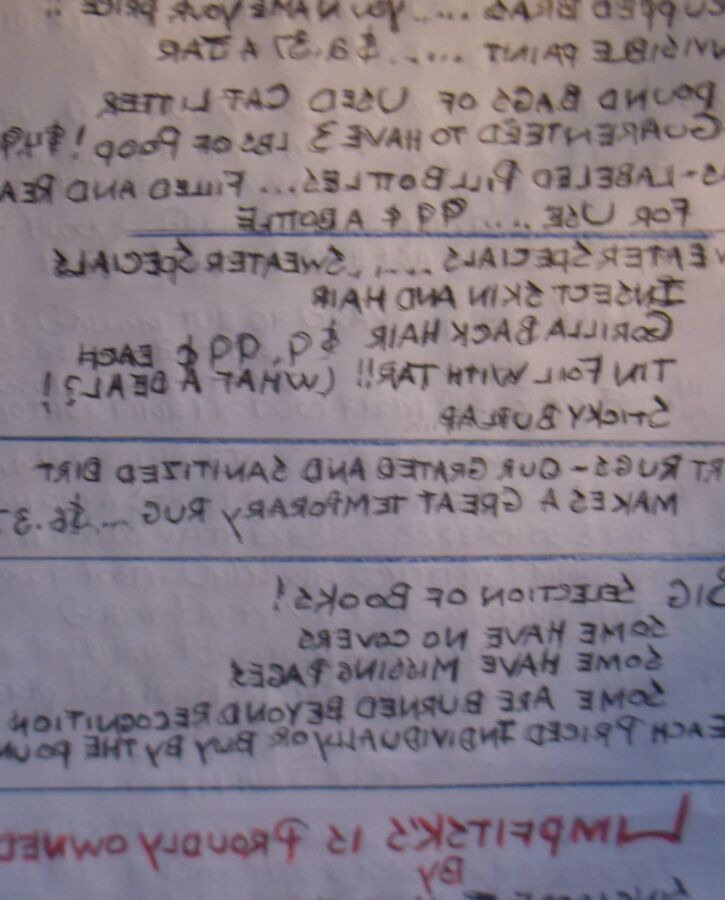 BRAS ..... YOU NAME YOUR PRICE !!
VISIBLE PAINT ..... $9.37 A JAR
POUND BAGS OF USED CAT LITTER
GUARENTEED TO HAVE 3 LBS OF POOP! $4.9
S-LABELED PILL BOTTLES... FILLED AND REA
FOR USE .... 99¢ A BOTTLE
WEATER SPECIALS ...., SWEATER SPECIALS
INSECT SKIN AND HAIR
GORILLA BACK HAIR $9.99¢ EACH
TIN FOIL WITH TAR!! (WHAT A DEAL?!
STICKY BURLAP
RT RUGS - OUR GRATED AND SANITIZED DIRT
MAKES A GREAT TEMPORARY RUG ... $6.3
BIG SELECTION OF BOOKS!
SOME HAVE NO COVERS
SOME HAVE MISSING PAGES
SOME ARE BURNED BEYOND RECOGNITION
EACH PRICED INDIVIDUALLY OR BUY BY THE POUN
LIMPFITSK'S IS PROUDLY OWNED
BY